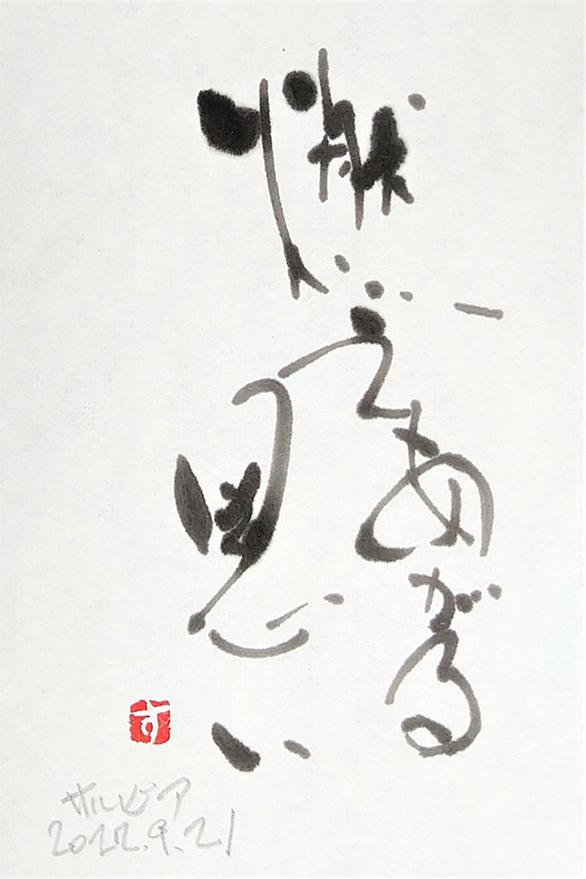 燃えあがる
思い
す
サルビア
2022.9.21